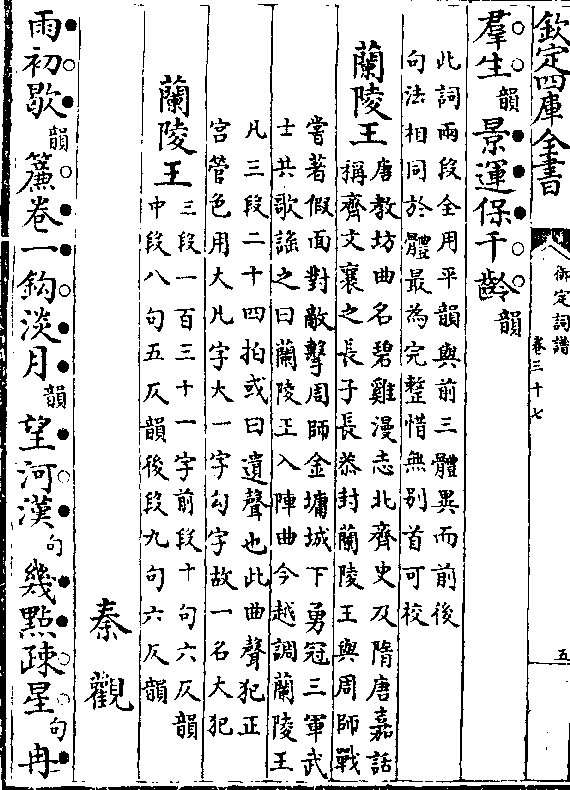 欽定四庫全書
御定詞譜
卷三十七
五
羣生韻景運保千齡韻
此詞兩段全用平韻與前三體異而前後
句法相同於體最為完整惜無別首可校
蘭陵王
唐教坊曲名碧雞漫志北齊史及隋唐嘉話
稱齊文襄之長子長恭封蘭陵王與周師戰
嘗著假面對敵擊周師金墉城下勇冠三軍武
士共歌謠之曰蘭陵王入陣曲今越調蘭陵王
凡三段二十四拍或曰遺聲也此曲聲犯正
宮管色用大凡字大一字勾字故一名大犯
蘭陵王
三段一百三十一字前段十句六仄韻
中段八句五仄韻後段九句六仄韻
秦觀
雨初歇韻簾卷一鈎淡月韻望河漢句幾點疎星句冉